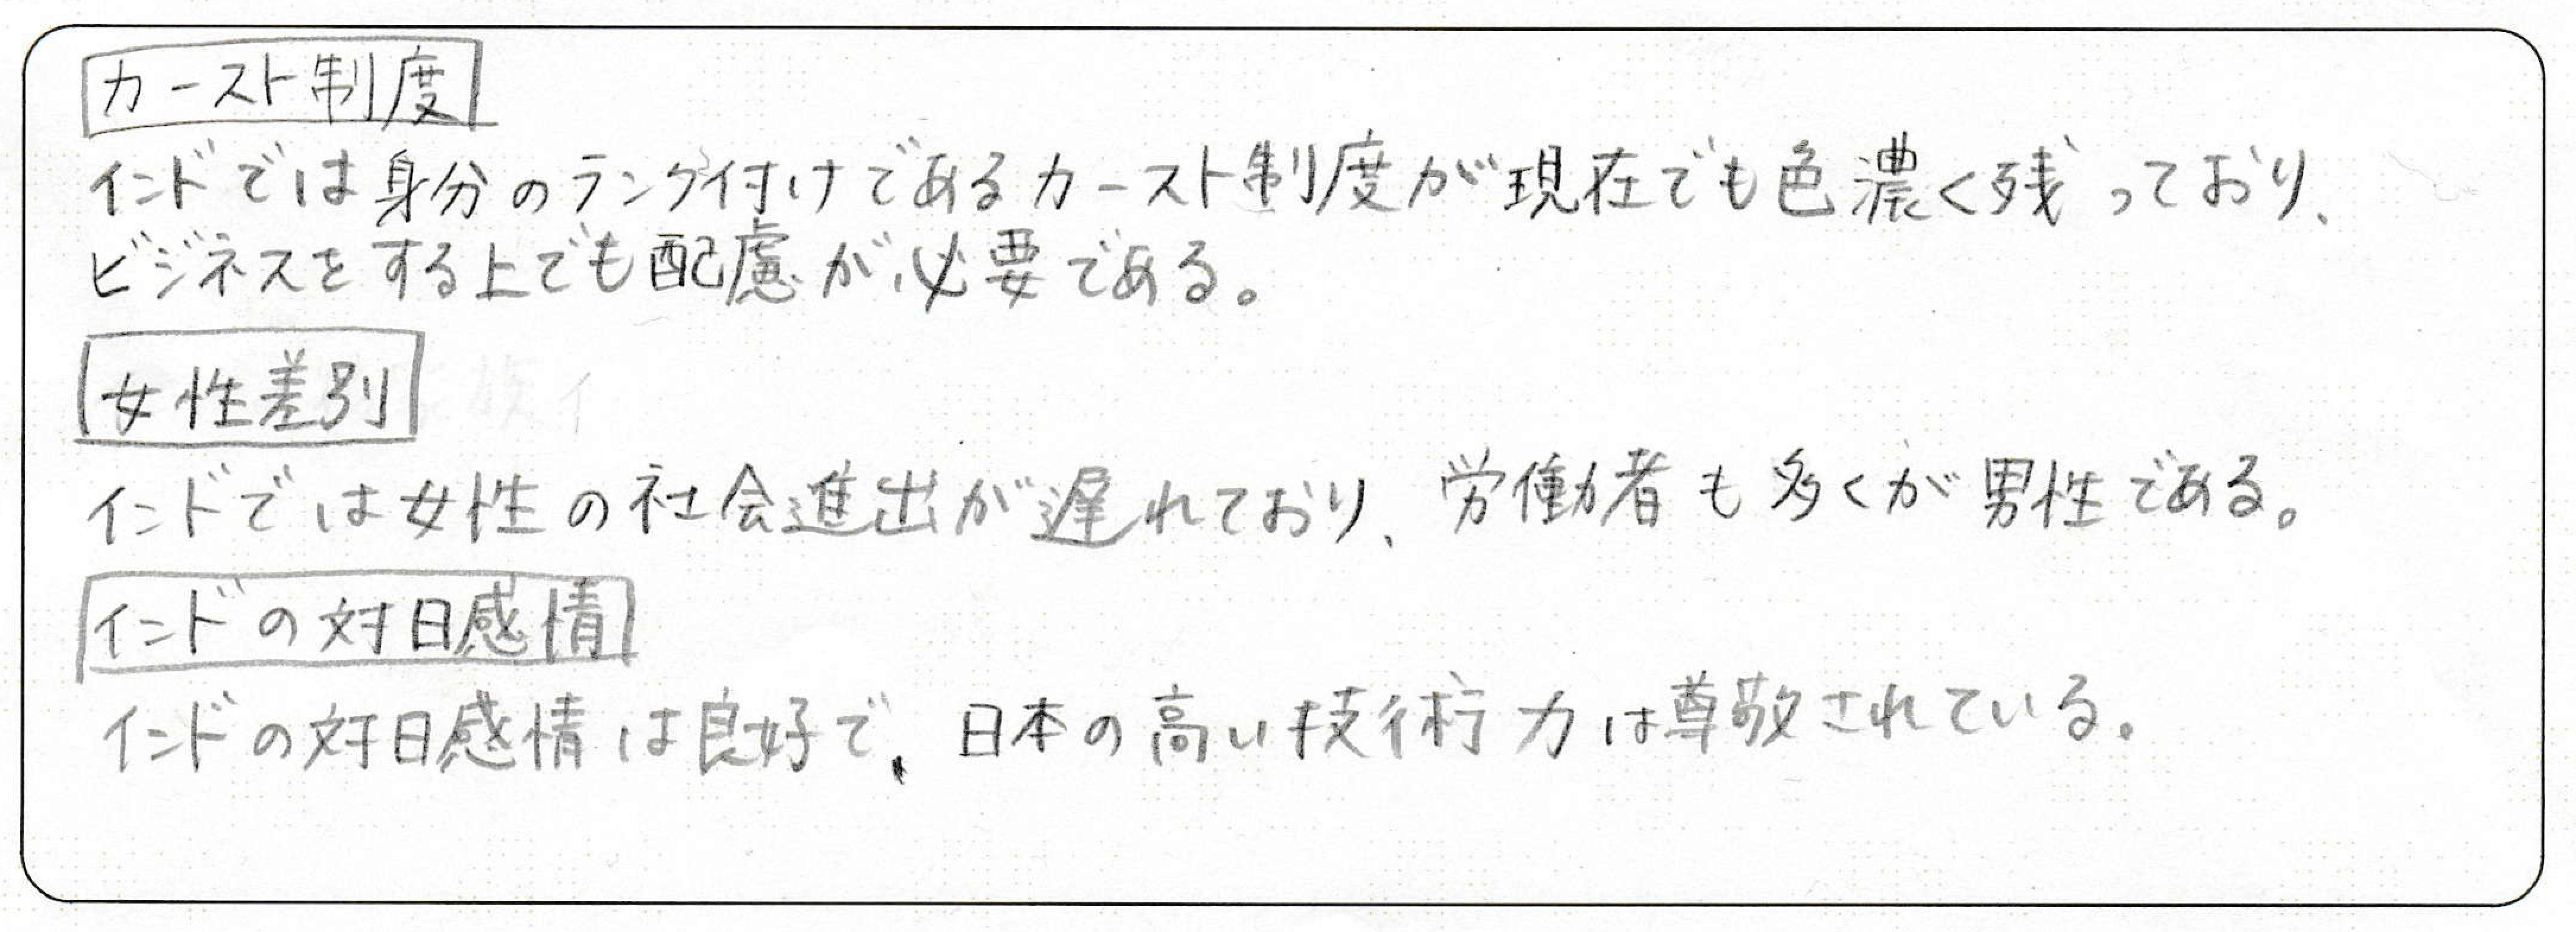 カースト制度
インドでは身分のランク付けであるカースト制度が現在でも色濃く残っており、
ビジネスをする上でも配慮が必要である。
女性差別
インドでは女性の社会進出が遅れており、労働者も多くが男性である。
インドの対日感情
インドの対日感情は良好で、日本の高い技術力は尊敬されている。